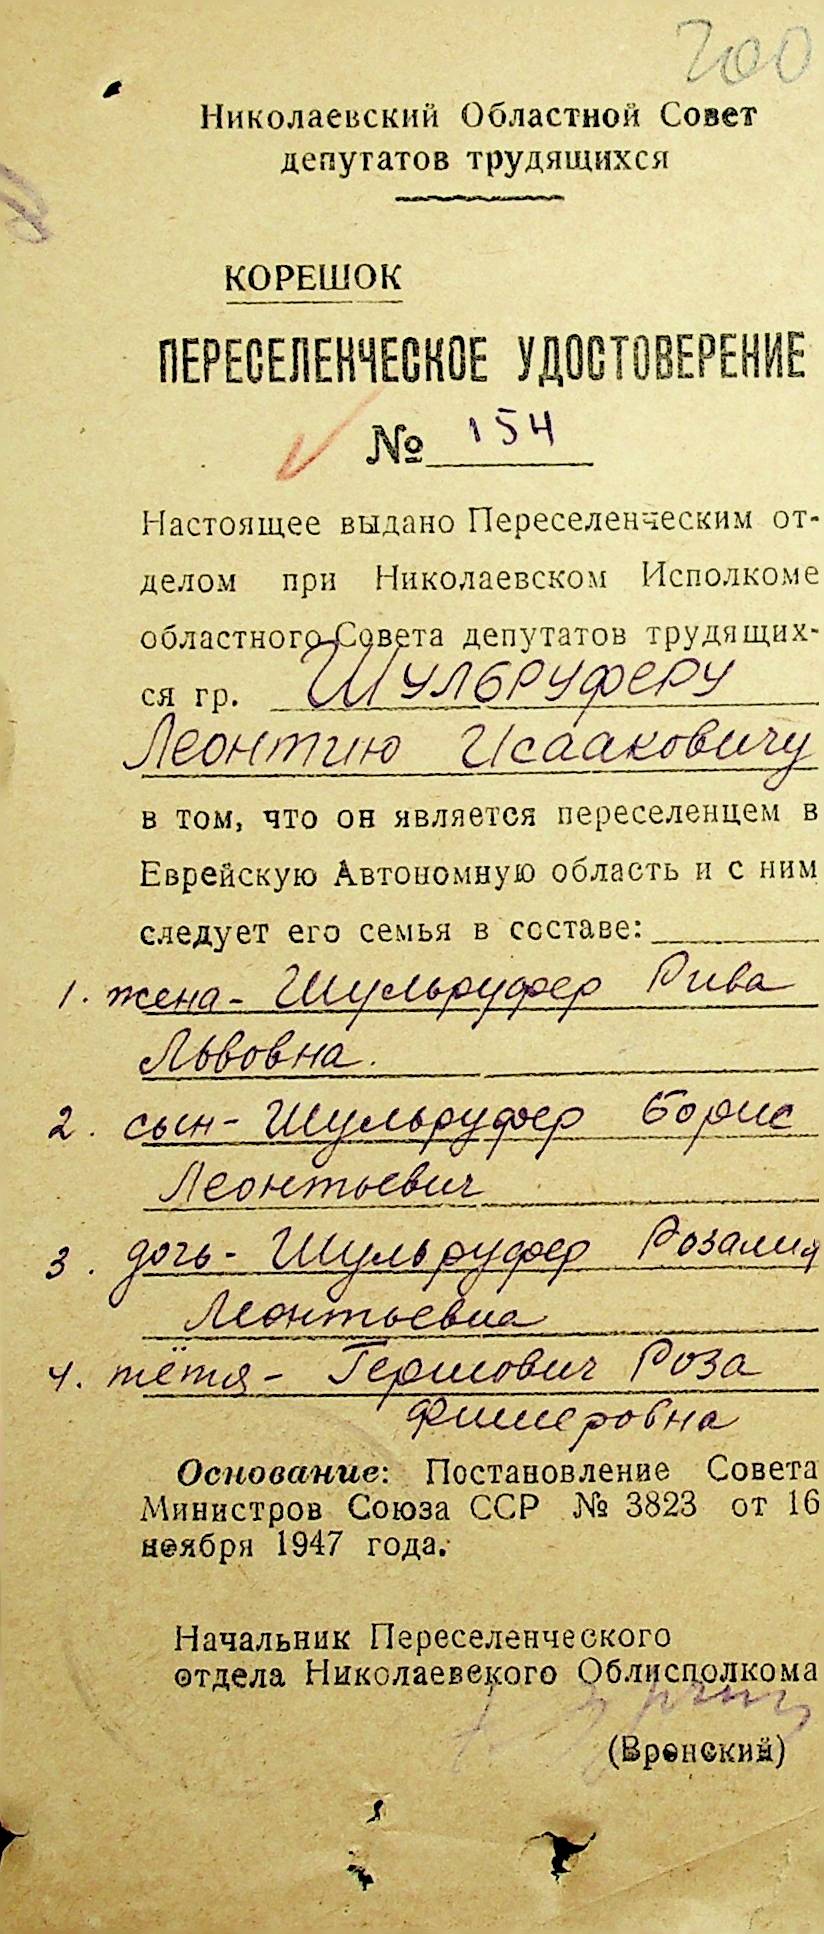 200
Николаевский Областной Совет
депутатов трудящихся
КОРЕШОК
ПЕРЕСЕЛЕНЧЕСКОЕ УДОСТОВЕРЕНИЕ
№ 154
Настоящее выдано Переселенческим от-
делом при Николаевском Исполкоме
областного Совета депутатов трудящих-
ся гр. Шульруферу
Леонтию Исааковичу
в том, что он является переселенцем в
Еврейскую Автономную область и с ним
следует его семья в составе:
1. жена - Шульруфер Рива
Львовна.
2. сын - Шульруфер Борис
Леонтьевич
3. дочь - Шульруфер Розалия
Леонтьевна
4. тётя - Гершович Роза
Фишеровна
Основание: Постановление Совета
Министров Союза ССР № 3823 от 16
ноября 1947 года.
Начальник Переселенческого
отдела Николаевского Облисполкома
(Вренский)